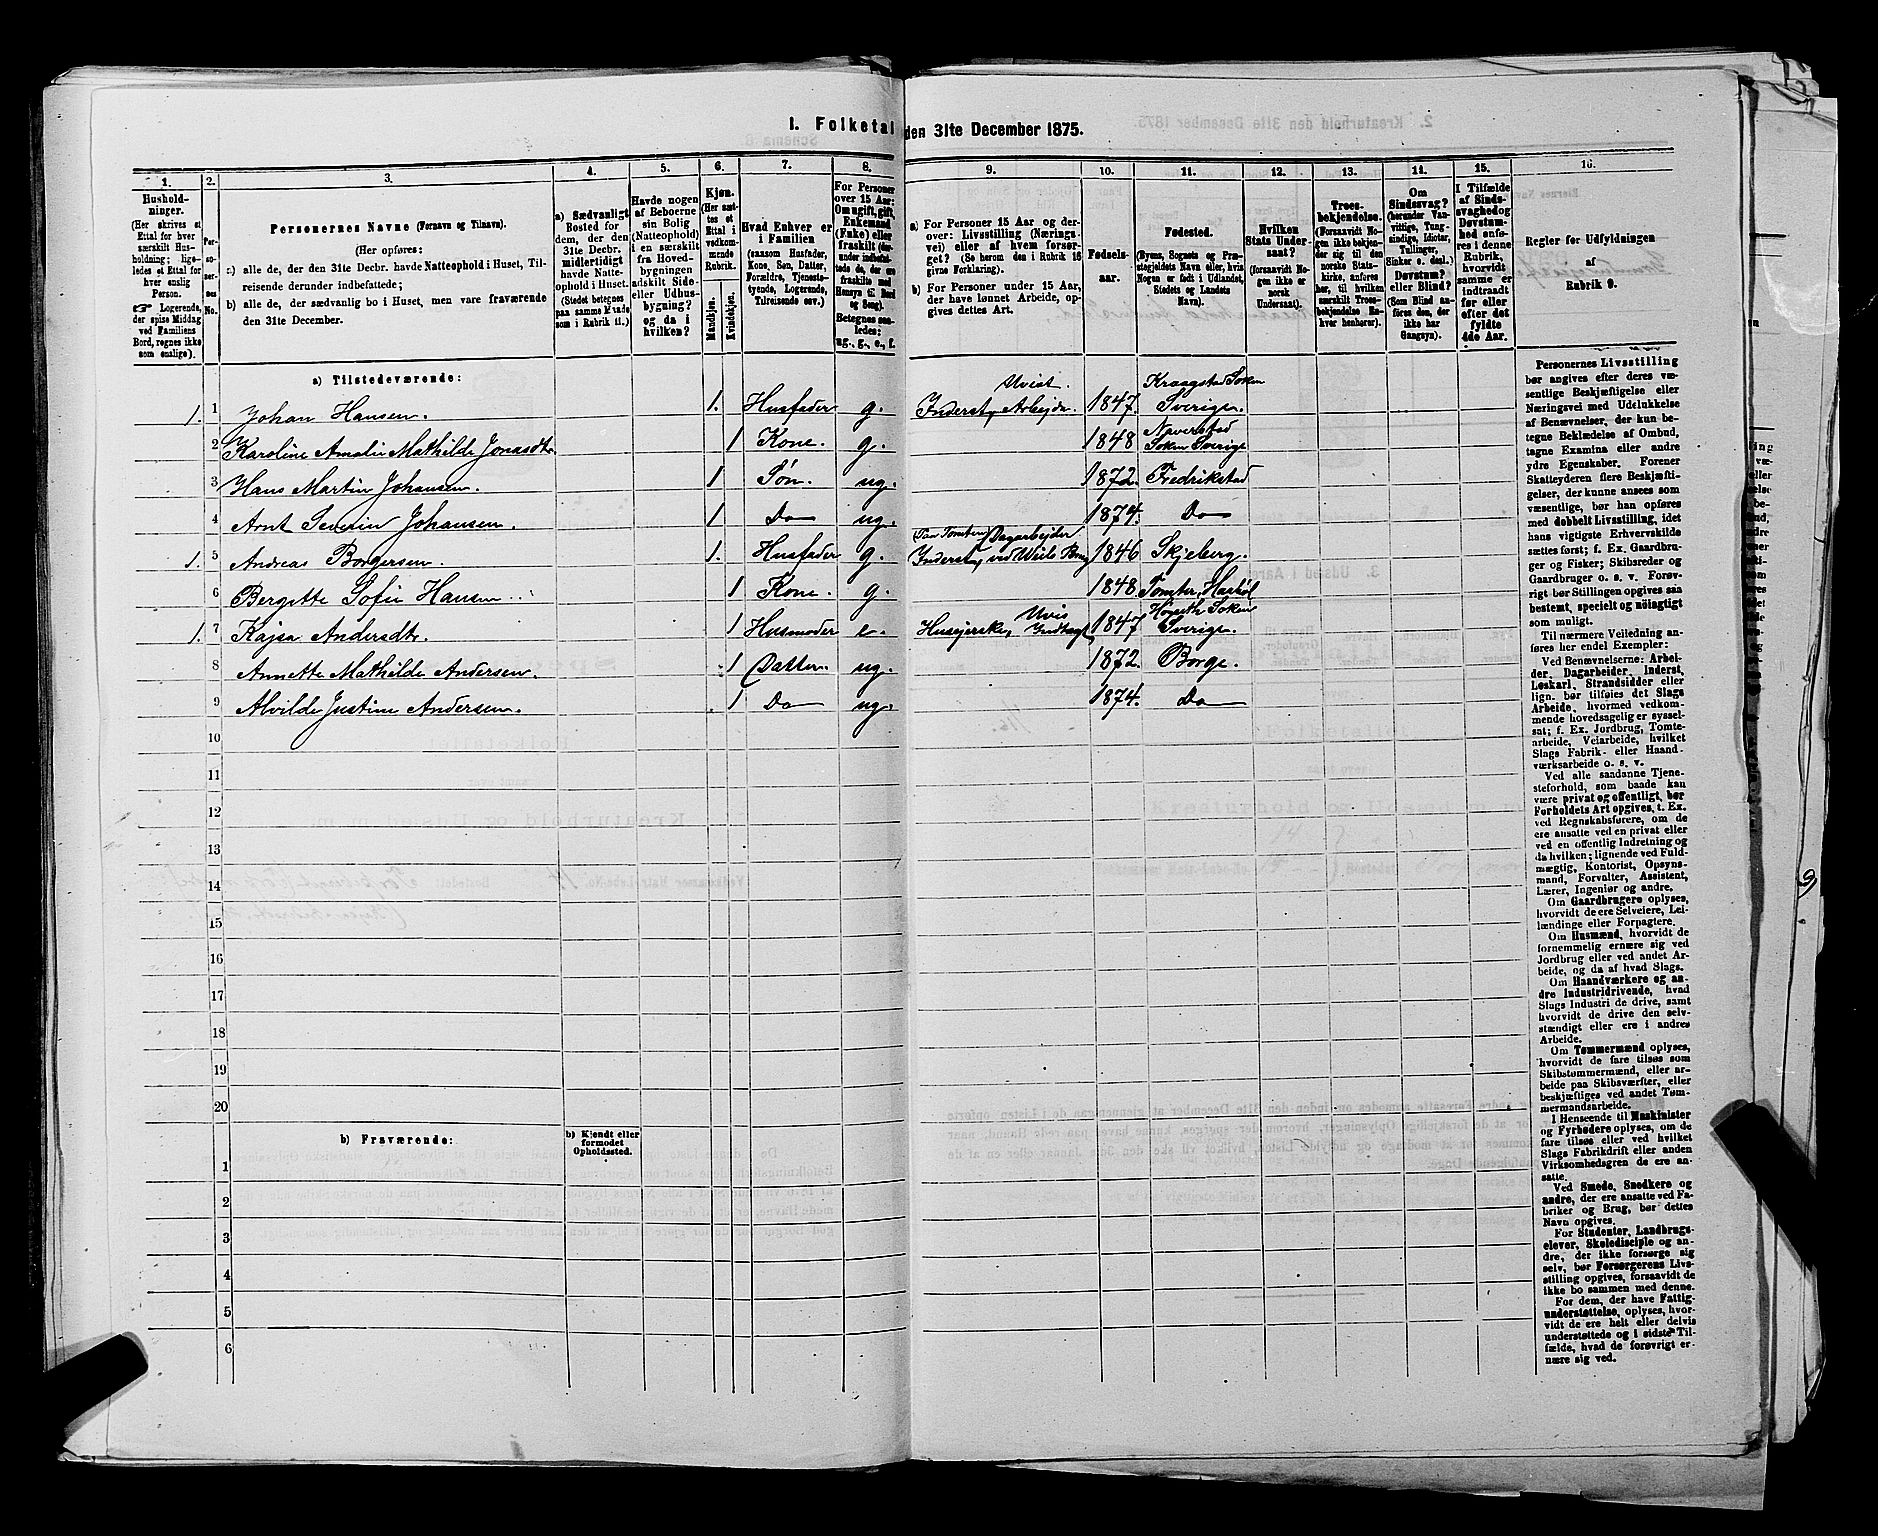 1. Folketal den 31te December 1875.
1. 2. 3. 4. 5. 6. 7. 8. 9. 10. 11. 12. 13. 14. 15. 16.
Hushold-
ninger.
(Her skrives et
Ettal for hver
særskilt Hus-
holdning; lige-
ledes et Ettal for
hver enslig
Person.
☞ Logerende,
der spise Middag
ved Familiens
Bord, regnes ikke
som enslige).
Per-
soner-
nes
No.
Personernes Navne (Fornavn og Tilnavn).
(Her opføres:
a) alle de, der den 31te Decbr. havde Natteophold i Huset, Til-
reisende derunder indbefattede;
b) alle de, der sædvanlig bo i Huset, men vare fraværende
den 31te December.
a) Sædvanligt
Bosted for
dem, der den
31te Decbr.
midlertidigt
havde Natte-
ophold i Huset.
(Stedet betegnes
paa samme Maade
som i Rubrik 11.)
Havde nogen
af Beboerne
sin Bolig
(Natteophold)
i en særskilt
fra Hoved-
bygningen
adskilt Side-
eller Udhus-
bygning?
og da i
hvilken?
Kjøn.
(Her sæt-
tes et
Ettal i
vedkom-
mende
Rubrik.
Mandkjøn.
Kvindekjøn.
Hvad Enhver er
i Familien
(saasom Husfader,
Kone, Søn, Datter,
Forældre, Tjeneste-
tyende, Logerende,
Tilreisende osv.)
For Personer
over 15 Aar:
Om ugift, gift,
Enkemand
(Enke) eller
fraskilt
Betegnes saa-
ledes:
ug., g., e., f.
a) For Personer 15 Aar og der-
over: Livsstilling (Nærings-
vei) eller af hvem forsør-
get? (Se herom des i Rubrik 16
givne Forklaring).
b) For Personer under 15 Aar,
der have lønnet Arbeide, op-
gives dettes Art.
Fødsels-
aar.
Fødested.
(Byens, Sognets og Præ-
stegjeldets Navn eller, hvis
Nogen er født i Udlandet,
Stedets og Landets
Navn).
Hvilken
Stats Under-
saat?
(forsaavidt No-
gen ikke er
norsk
Undersaat).
Troes-
bekjendelse.
(Forsaavidt No-
gen ikke bekjen-
der sig til den
norske Stats-
kirke, anføres
her, til hvilken
særskilt Troes-
bekjendelse En-
hver henhører).
Om
Sindssvag?
(herunder Van-
vittige, Tung-
sindige, Idioter,
Tullinger,
Sinker o. desl.)
Døvstum?
eller Blind?
(Som Blind an-
føres den, der
ikke har
Gangsyn).
I Tilfælde
af Sinds-
svaghed og
Døvstum-
hed anfø-
res i denne
Rubrik,
hvorvidt
samme er
indtraadt
før eller
efter det
fyldte
4de Aar.
Regler for Udfyldningen
af
Rubrik 9.
a) Tilstedeværende:
1. 1 Johan Hansen. 1. Husfader g. Inderst, Arbejde. Uvist. 1847. Kraagstad Soken Sverige.
2 Karoline Amalie Mathilde Jonasdt. 1 Kone. g. 1848 Naverstad Soken Sverige
3 Hans Martin Johansen. 1 Søn. ug. 1872. Fredrikstad
4 Arnt Severin Johansen. 1 Do ug. 1874. Do
1. 5 Andreas Borgersen. 1. Husfader g. Inderst, Dagarbejder ved 1846 Skjeberg.
6 Bergitte Sofie Hansen 1 Kone. g. 1848 Tomter,
1. 7 Kajsa Andersdt. 1 Husmoder e. Husejerske, Uvis Indtægt 1847 Soken Sverige.
8 Annette Mathilde Andersen. 1 Datter ug. 1872. Borge.
9 Alvilde Justine Andersen. 1 Do ug. 1874. Do
10
11
12
13
14
15
16
17
18
19
20
b) Fraværende:
b) Kjendt eller
formodet
Opholdssted.
1
2
3
4
5
6
Personernes Livsstilling
bør angives efter deres væ-
sentlige Beskjæftigelse eller
Næringsvei med Udelukkelse
af Benævnelser, der kun be-
tegne Beklædelse af Ombud,
tagne Examina eller andre
ydre Egenskaber. Forener
Skatteyderen flere Beskjæfti-
gelser, der kunne ansees som
væsentlige, bør han opføres
med dobbelt Livsstilling, idet
hans vigtigste Erhvervskilde
sættes først; f. Ex. Gaardbru-
ger og Fisker; Skibsreder og
Gaardbruger o. s. v. Forøv-
rigt bør Stillingen opgives saa
bestemt, specielt og nøiagtigt
som muligt.
Til nærmere Veiledning an-
føres her endel Exempler:
Ved Benævnelserne: Arbei-
der, Dagarbeider, Inderst,
Løskarl, Strandsidder eller
lign. bør tilføies det Slags
Arbeide, hvormed vedkom-
mende hovedsagelig er syssel-
sat; f. Ex. Jordbrug, Tomte-
arbeide, Veiarbeide, hvilket
Slags Fabrik- eller Haand-
værksarbeide o. s. v.
Ved alle saadanne Tjene-
steforhold, som baade kan
være privat og offentligt, bør
Forholdets Art opgives, t. Ex.
ved Regnskabsførere, om de
ere ansatte ved en privat eller
ved en offentlig Indretning og
da hvilken; lignende ved Fuld-
mægtig, Kontorist, Opsyns-
mand, Forvalter, Assistent,
Lærer, Ingeniør og andre.
Om Gaardbrugere oplyses,
hvorvidt de ere Selveiere, Lei-
lændinge eller Forpagtere.
Om Husmænd, hvorvidt de
fornemmelig ernære sig ved
Jordbrug eller ved andet Ar-
beide, og da af hvad Slags.
Om Haandværkere og an-
dre Industridrivende, hvad
Slags Industri de drive, samt
hvorvidt de drive den selv-
stændigt eller ere i andres
Arbeide.
Om Tømmermænd oplyses,
hvorvidt de fare tilsøs som
Skibstømmermænd, eller ar-
beide paa Skibsværfter, eller
beskjæftiges ved andet Tøm-
mermandsarbeide.
I Henseende til Maskinister
og Fyrbødere oplyses, om de
fare tilsøs eller ved hvilket
Slags Fabrikdrift eller anden
Virksomhedsgren de ere an-
satte.
Ved Smede, Snedkere og
andre, der ere ansatte ved Fa-
briker og Brug, bør dettes
Navn opgives.
For Studenter, Landbrugs-
elever, Skoledisciple og an-
dre, der ikke forsørge sig
selv, bør Forsørgerens Livs-
stilling opgives, forsaavidt de
ikke bo sammen med denne.
For dem, der have Fattig-
understøttelse, oplyses, hvor-
vidt de ere helt eller delvis
understøttede og i sidste Til-
fælde, hvad de forøvrigt er-
nære sig ved.